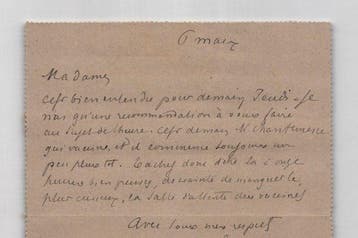 6 mars
Madame,
c'est bien entendu pour demain Jeudi. Je
n'ai qu'une recommandation à vous faire
au sujet de l'heure. C'est demain M. 
qui vaccine, et il commence toujours un
peu plus tôt. Tachez donc d'être là à onze
heures bien precises, de crainte de manquer le
plus curieux, la salle d'attente des vaccinés
Avec tous mes respects